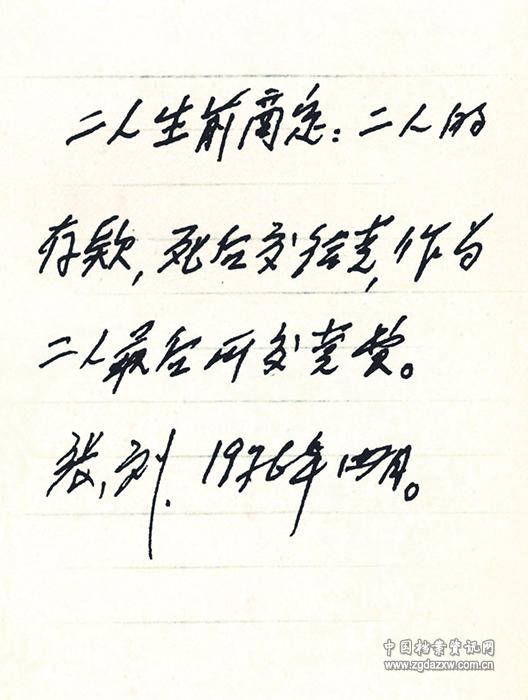 二人生前商定：二人的
存款，死后交给党，作为
二人最后所交党费。
张、刘．1976年四月。
中国档案资讯网
www.zgdazxw.com.cn